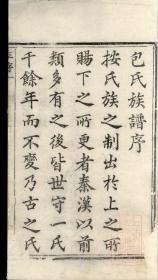 包氏族譜序
按氏族之制出於上之所
賜下之所更者秦漢以前
類多有之後皆世守一氏
千餘年而不變乃古之氏